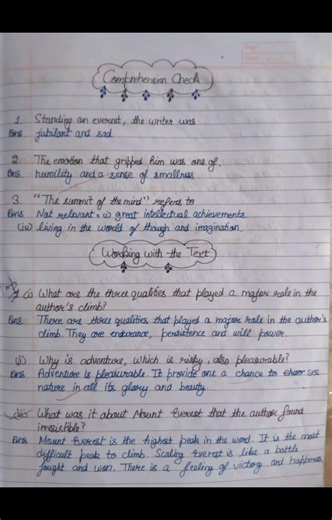 Comprehension Check
1. Standing an everest, the writer was
Ans jubilant and sad
2. The emotion that gripped him was one of
Ans humility and a sense of smallness
3. "The summit of the mind" refers to
Ans Not relevant. (ii) great intellectual achievements
(iii) living in the world of though and imagination.
Working with the Text
1 (i) What are the three qualities that played a major role in the
author's climb?
Ans There are three qualities that played a major role in the author's
climb. They are endurance, persistence and will power.
(ii) Why is adventure, which is risky, also pleasurable?
Ans Adventure is pleasurable. It provide one a chance to see
nature in all its glory and beauty.
(iii) What was it about Mount Everest that the author found
irresistible?
Ans Mount Everest is the highest peak in the word. It is the most
difficult peak to climb. Scaling Everest is like a battle
fought and won. There is a feeling of victory and happiness